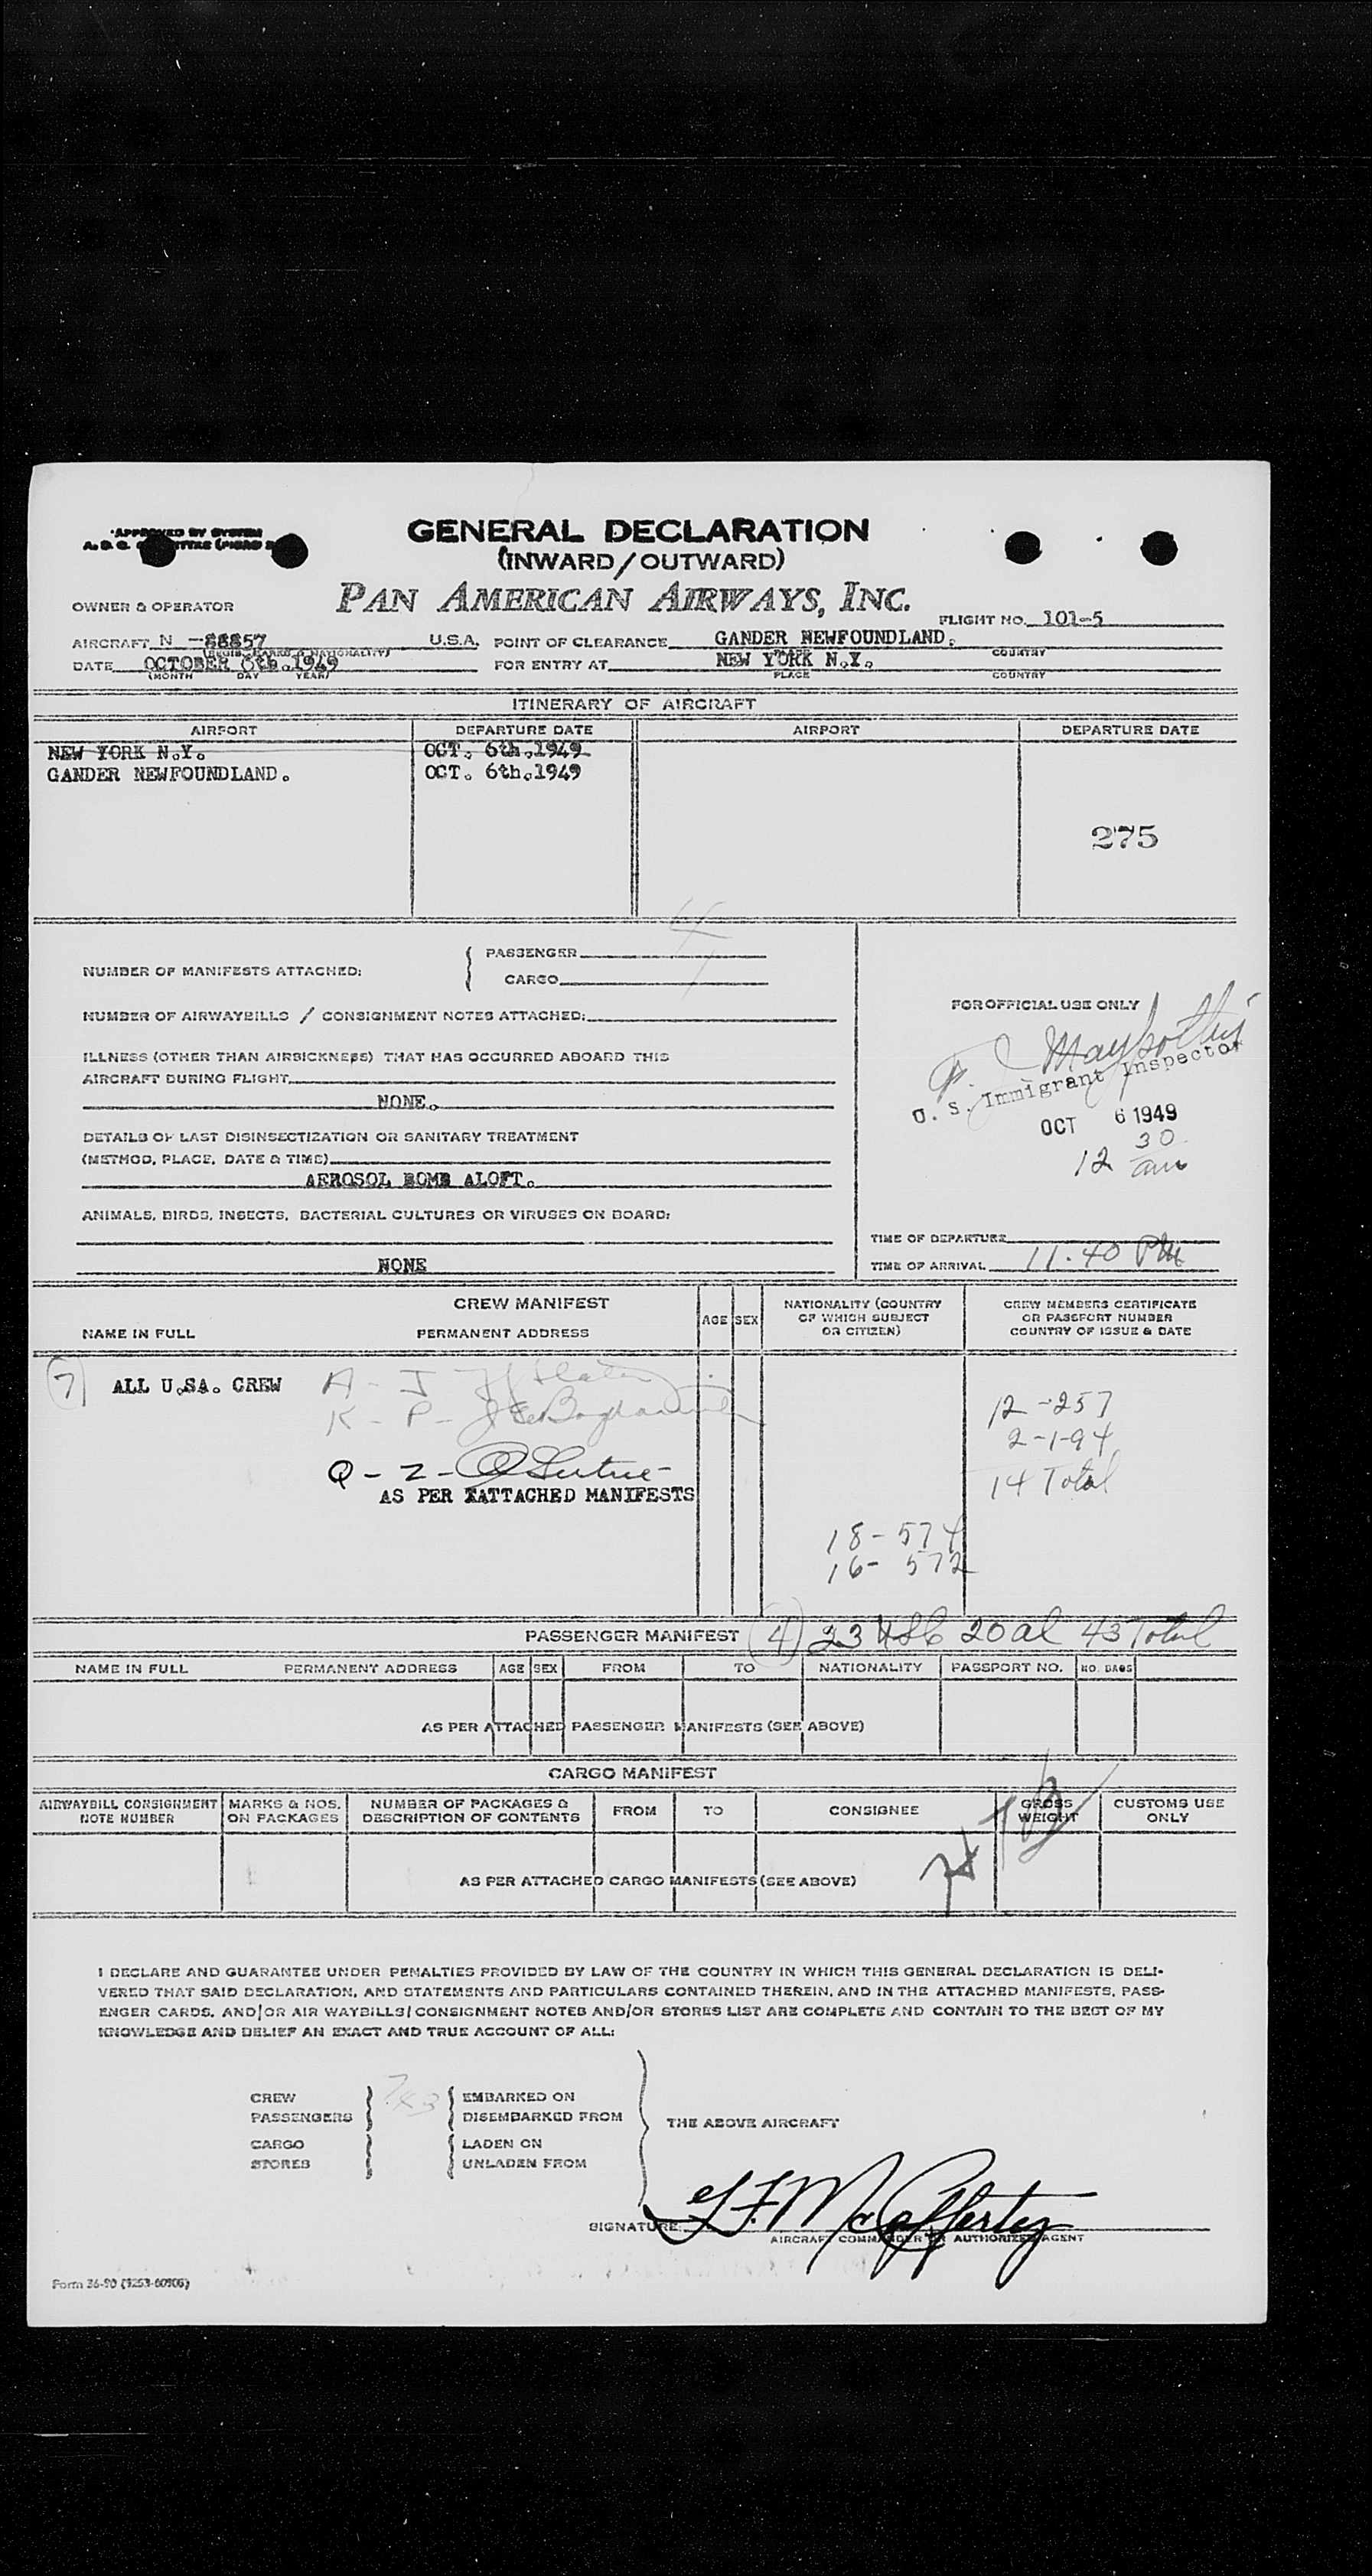 GENERAL DECLARATION
(INWARD/OUTWARD)
PAN AMERICAN AIRWAYS, INC.
OWNER & OPERATOR
FLIGHT NO. 101-5
AIRCRAFT N -88857 U.S.A. POINT OF CLEARANCE GANDER NEWFOUNDLAND.
COUNTRY
DATE OCTOBER 6th.1949 FOR ENTRY AT NEW YORK N.Y.
(MONTH DAY YEAR) PLACE COUNTRY
ITINERARY OF AIRCRAFT
AIRPORT DEPARTURE DATE AIRPORT DEPARTURE DATE
NEW YORK N.Y. OCT. 6th.1949
GANDER NEWFOUNDLAND. OCT. 6th.1949
275
NUMBER OF MANIFESTS ATTACHED: PASSENGER 4
CARGO
NUMBER OF AIRWAYBILLS / CONSIGNMENT NOTES ATTACHED:
ILLNESS (OTHER THAN AIRSICKNESS) THAT HAS OCCURRED ABOARD THIS
AIRCRAFT DURING FLIGHT
NONE.
DETAILS OF LAST DISINSECTIZATION OR SANITARY TREATMENT
(METHOD, PLACE, DATE & TIME)
AEROSOL BOMB ALOFT.
ANIMALS, BIRDS, INSECTS, BACTERIAL CULTURES OR VIRUSES ON BOARD:
NONE
FOR OFFICIAL USE ONLY
U. S. Immigrant Inspector
OCT 6 1949
12 30 am
TIME OF DEPARTURE
TIME OF ARRIVAL 11.40 PM
CREW MANIFEST
NAME IN FULL PERMANENT ADDRESS AGE SEX NATIONALITY (COUNTRY OF WHICH SUBJECT OR CITIZEN) CREW MEMBERS CERTIFICATE OR PASSPORT NUMBER COUNTRY OF ISSUE & DATE
7 ALL U.SA. CREW A - J
K - P -
Q - Z -
AS PER XATTACHED MANIFESTS
12 - 257
2-1-94
14 Total
18 - 574
16 - 572
PASSENGER MANIFEST (4) 23 USC 20 al 43 Total
NAME IN FULL PERMANENT ADDRESS AGE SEX FROM TO NATIONALITY PASSPORT NO. NO. BAGS
AS PER ATTACHED PASSENGER MANIFESTS (SEE ABOVE)
CARGO MANIFEST
AIRWAYBILL CONSIGNMENT NOTE NUMBER MARKS & NOS. ON PACKAGES NUMBER OF PACKAGES & DESCRIPTION OF CONTENTS FROM TO CONSIGNEE GROSS WEIGHT CUSTOMS USE ONLY
AS PER ATTACHED CARGO MANIFESTS (SEE ABOVE)
I DECLARE AND GUARANTEE UNDER PENALTIES PROVIDED BY LAW OF THE COUNTRY IN WHICH THIS GENERAL DECLARATION IS DELI-
VERED THAT SAID DECLARATION, AND STATEMENTS AND PARTICULARS CONTAINED THEREIN, AND IN THE ATTACHED MANIFESTS, PASS-
ENGER CARDS, AND/OR AIR WAYBILLS/CONSIGNMENT NOTES AND/OR STORES LIST ARE COMPLETE AND CONTAIN TO THE BEST OF MY
KNOWLEDGE AND BELIEF AN EXACT AND TRUE ACCOUNT OF ALL:
CREW 7 EMBARKED ON
PASSENGERS 43 DISEMBARKED FROM
THE ABOVE AIRCRAFT
CARGO LADEN ON
STORES UNLADEN FROM
SIGNATURE: McCafferty
AIRCRAFT COMMANDER OR AUTHORIZED AGENT